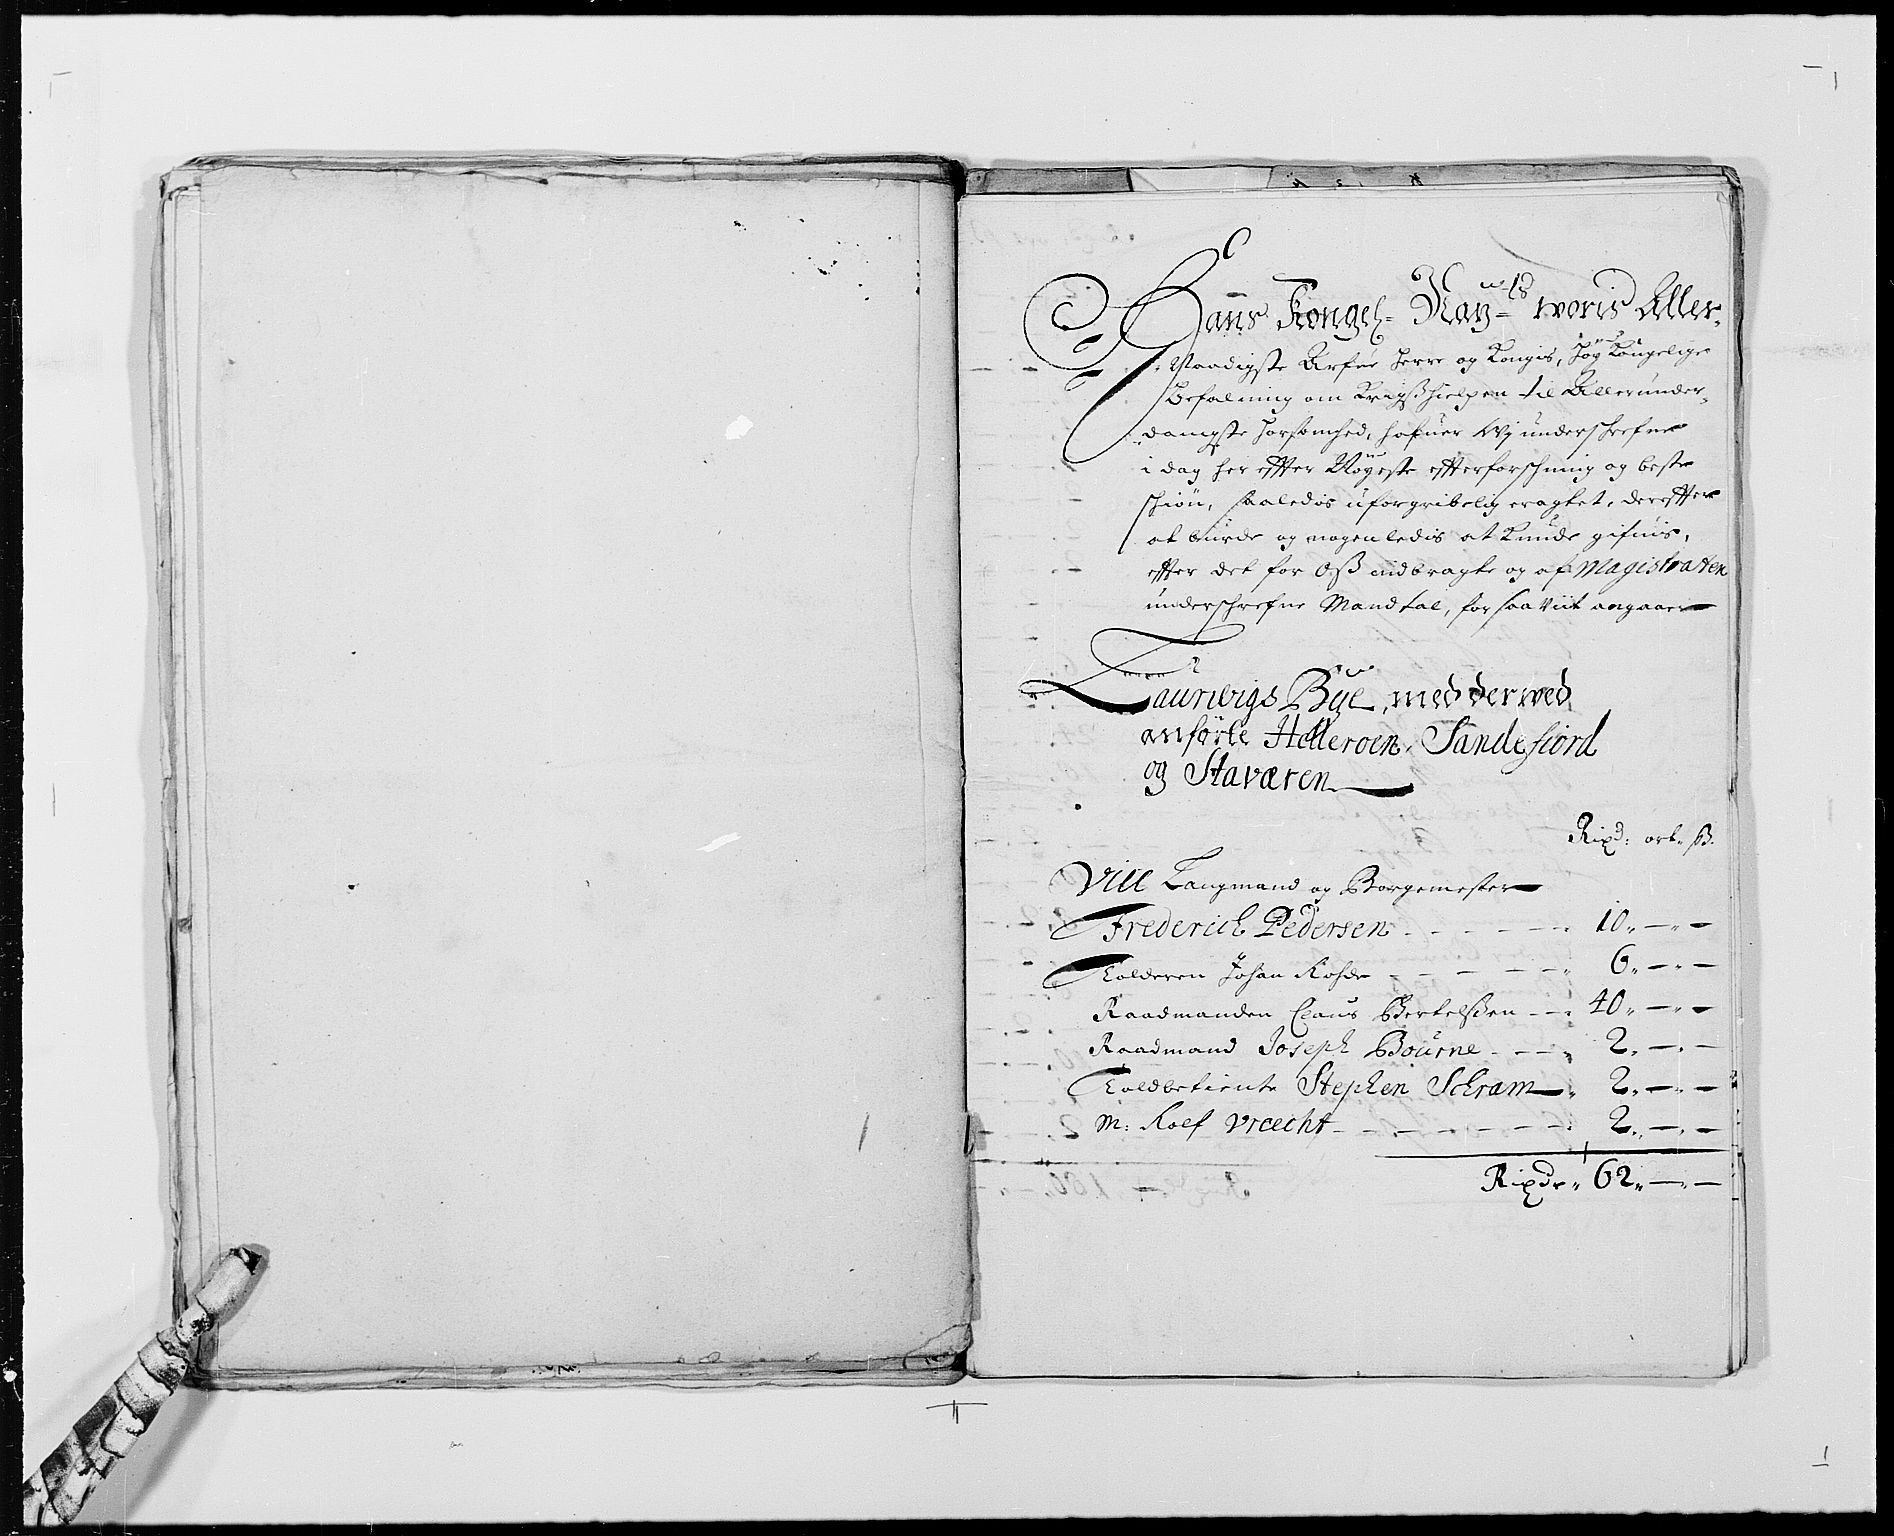 Hans Kongel: May:ts woris Aller-
Naadigste Arfue Herre og Kongis, Høy Kongelige
Befalning om Krigshielpen til Allerunder-
danigste Hørsomhed, hafuer Wj underschrefne
i dag her effter Nøyeste efterforschning og beste
schiøn, saaledis uforgribelig eragtet, dereffter
at burde og nogenledis at kunde gifuis,
effter det for Oß indbragte og af Magistraten
underschrefne Mandtal, for saa Viit angaaer
Laurwigs Bye, med der wed
anförte Helleroen, Sandefiord
og Staværen
Rixd: ort. ß.
Vill Laugmand og Borgemester
Frederich Pedersen - - - 10. — —
Tolderen Johan Rohde - - - 6. — —
Raadmanden Claus Bertelßen - - 40. — —
Raadmand Joseph Bourne - - - 2. — —
Toldbetiente Stephen Schram 2. — —
M: Roef Vrecht - - - 2. — —
Rixdr. 62. — —